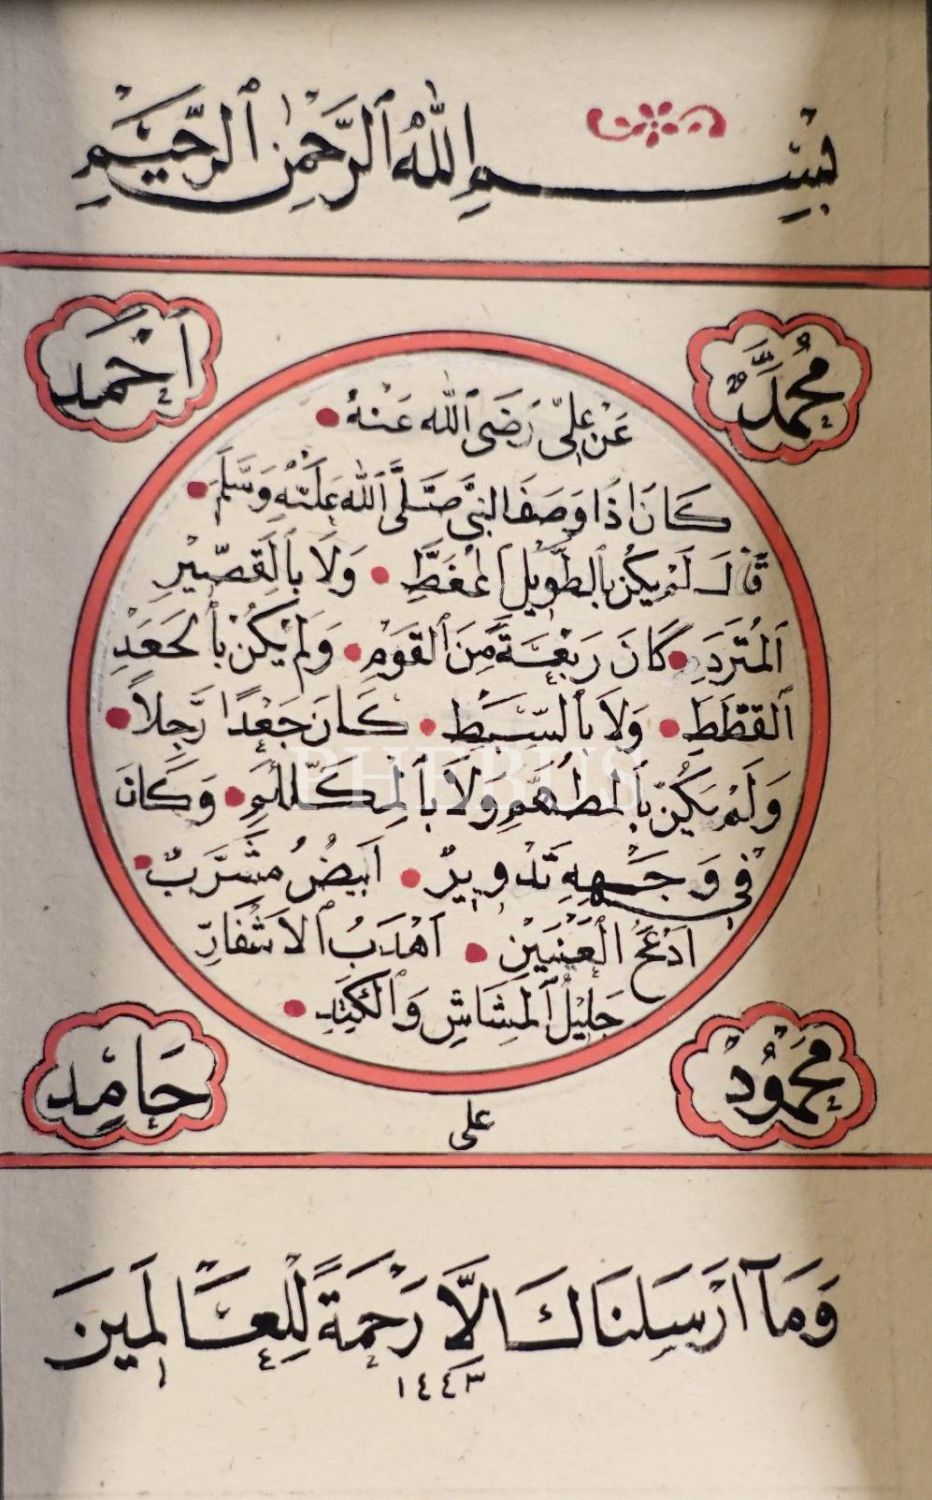 بِسْمِ ٱللّٰهِ ٱلرَّحْمٰنِ ٱلرَّحِيْمِ
مُحَمَّدٌ
اَحْمَد
عَنْ عَلِيٍّ رَضَى ٱللّٰه عَنْهُ
كَانَ اِذَا وَصَفَ النَّبِي صَلَّى ٱللّٰه عَلَيْهِ وَسَلَّمَ
قَالَ لَمْ يَكُنْ بِالطَّوِيْلِ ٱلمُمَغَّطِ وَلَا بِٱلقَصِّيْرِ
ٱلمُتَرَدِّدِ كَانَ رَبْعَةً مِنَ ٱلقَوْمِ وَلَمْ يَكُنْ بِٱلجَعْدِ
ٱلقَطَطِ وَلَا بِٱلسَّبْطِ كَانَ جَعْدًا رَجِلاً
وَلَمْ يَكُنْ بِٱلمُطَهَّمِ وَلَا بِٱلمُكَلْثَمِ وَكَانَ
فِي وَجْهِهِ تَدْوِيرٌ اَبْيَضُ مُشَرَّبٌ
اَدْعَجُ العَيْنَيْنِ اَهْدَبُ ٱلاَشْفَارِ
جَلِيْلُ ٱلمُشَاشِ وَٱلكَتَدِ
مَحْمُودْ
حَامِد
على
وَمَآ اَرْسَلنَاكَ اِلَّا رَحْمَةً لِلْعَالَمِينَ
١٤٤٣
PHEBUS